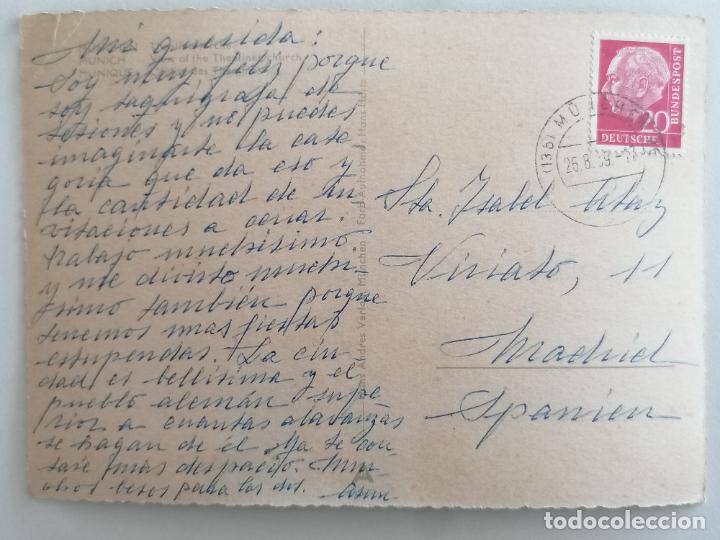 Mi querida:
MUNICH View of the Theatine church
Soy muy feliz porque
soy taquígrafa de
sesiones y no puedes
imaginarte la cate
goría que da eso y
la cantidad de in
vitaciones a cenar.
Trabajo muchísimo
y me divierto muchí
simo también porque
tenemos unas fiestas
estupendas. La ciu-
dad es bellísima y el
pueblo alemán supe
rior a cuantas alavanzas
se hagan de él. Ya te con
taré más despacio. Mu
chos besos para las dos.
Andres Verlag München Farb Aufnahme: Hans Huber
20
DEUTSCHE
BUNDESPOST
(13b) MÜNCHEN
26.8.59
Sta. Isabel
Viriato, 11
Madrid
Spanien
todocoleccion.net